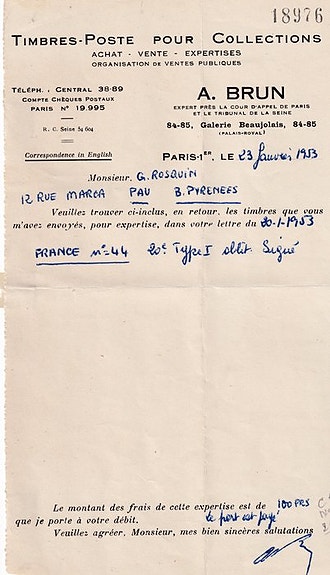 18976
TIMBRES-POSTE POUR COLLECTIONS
ACHAT - VENTE - EXPERTISES
ORGANISATION DE VENTES PUBLIQUES
TÉLÉPH. : CENTRAL 38-89
COMPTE CHÈQUES POSTAUX
PARIS N° 19.995
R. C. Seine 54 604
A. BRUN
EXPERT PRÈS LA COUR D'APPEL DE PARIS
ET LE TRIBUNAL DE LA SEINE
84-85, Galerie Beaujolais, 84-85
(PALAIS-ROYAL)
Correspondence in English
PARIS-1ER, LE 23 Janvier 1953
Monsieur. G. ROSQUIN
12 RUE MARCA PAU B. PYRENEES
Veuillez trouver ci-inclus, en retour, les timbres que vous
m'avez envoyés, pour expertise, dans votre lettre du 20-1-1953
FRANCE n° 44 20c Type I oblit. Signé
Le montant des frais de cette expertise est de 100 FRS
que je porte à votre débit. le port est payé
Veuillez agréer. Monsieur, mes bien sincères salutations